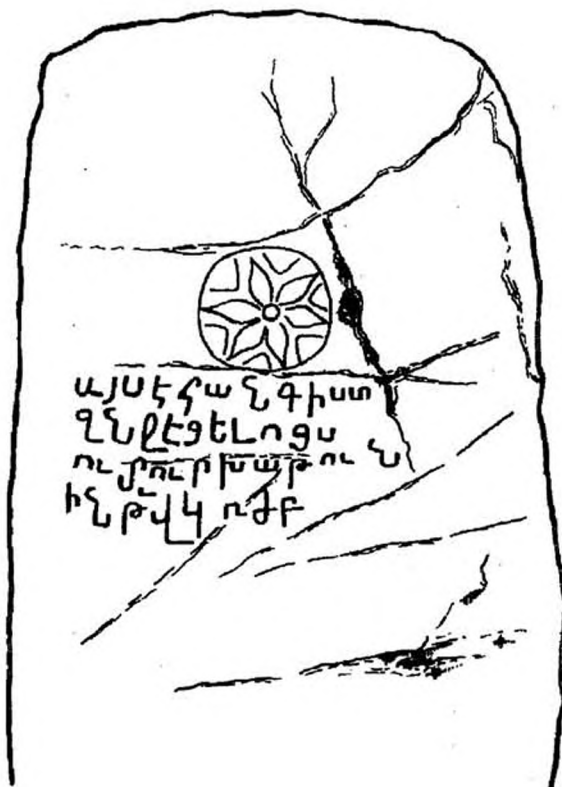 այս է հանգիստ
զնջէցելոցս
ումուրխաթուն
ին թվկ ռժբ